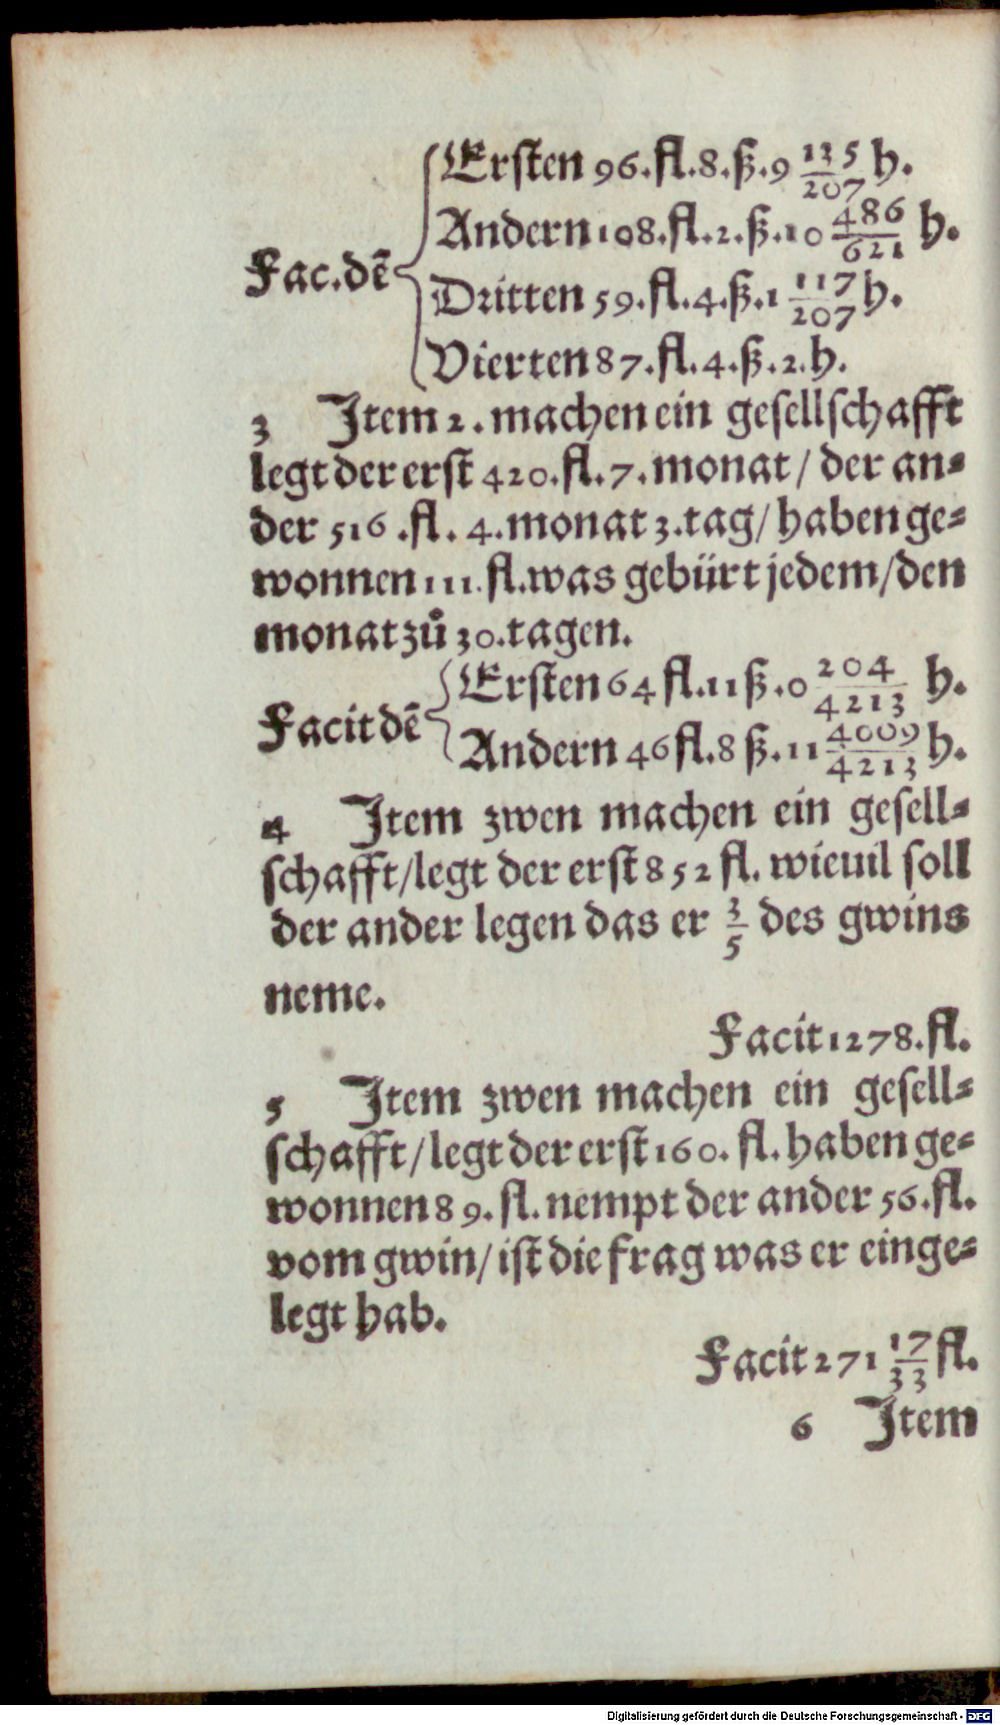 Fac.dē
Ersten 96.fl.8.ß.9 135/207 h.
Andern 108.fl.2.ß.10 486/621 h.
Dritten 59.fl.4.ß.1 117/207 h.
Vierten 87.fl.4.ß.2.h.
3 Item 2. machen ein gesellschafft
legt der erst 420.fl.7.monat/ der an-
der 516.fl. 4.monat 3.tag/ haben ge-
wonnen 111.fl.was gebürt jedem/den
monat zů 30.tagen.
Facit dē
Ersten 64 fl.11 ß.0 204/4213 h.
Andern 46 fl.8 ß.11 4009/4213 h.
4 Item zwen machen ein gesell-
schafft/legt der erst 852 fl. wieuil soll
der ander legen das er 3/5 des gwins
neme.
Facit 1278.fl.
5 Item zwen machen ein gesell-
schafft/legt der erst 160. fl. haben ge-
wonnen 89. fl. nempt der ander 56.fl.
vom gwin/ ist die frag was er einge-
legt hab.
Facit 271 17/33 fl.
6 Item
Digitalisierung gefördert durch die Deutsche Forschungsgemeinschaft - DFG